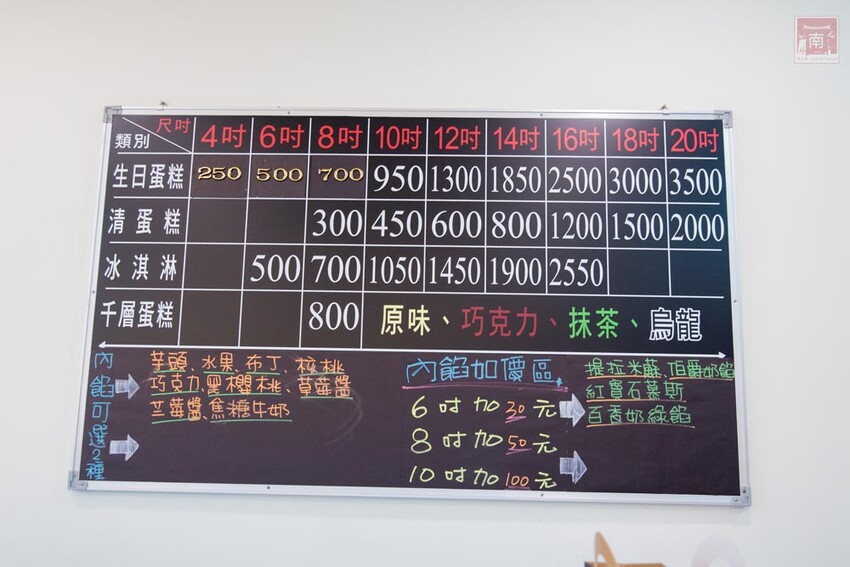 南
尺吋 4吋 6吋 8吋 10吋 12吋 14吋 16吋 18吋 20吋
類別
生日蛋糕 250 500 700 950 1300 1850 2500 3000 3500
清蛋糕 300 450 600 800 1200 1500 2000
冰淇淋 500 700 1050 1450 1900 2550
千層蛋糕 800 原味、巧克力、抹茶、烏龍
內餡可選2種
芋頭、水果、布丁、核桃
巧克力、黑櫻桃、草莓醬
蘭莓醬、焦糖牛奶
內餡加價區
6吋加30元
8吋加50元
10吋加100元
提拉米蘇、伯爵奶餡
紅寶石慕斯
百香奶綠餡